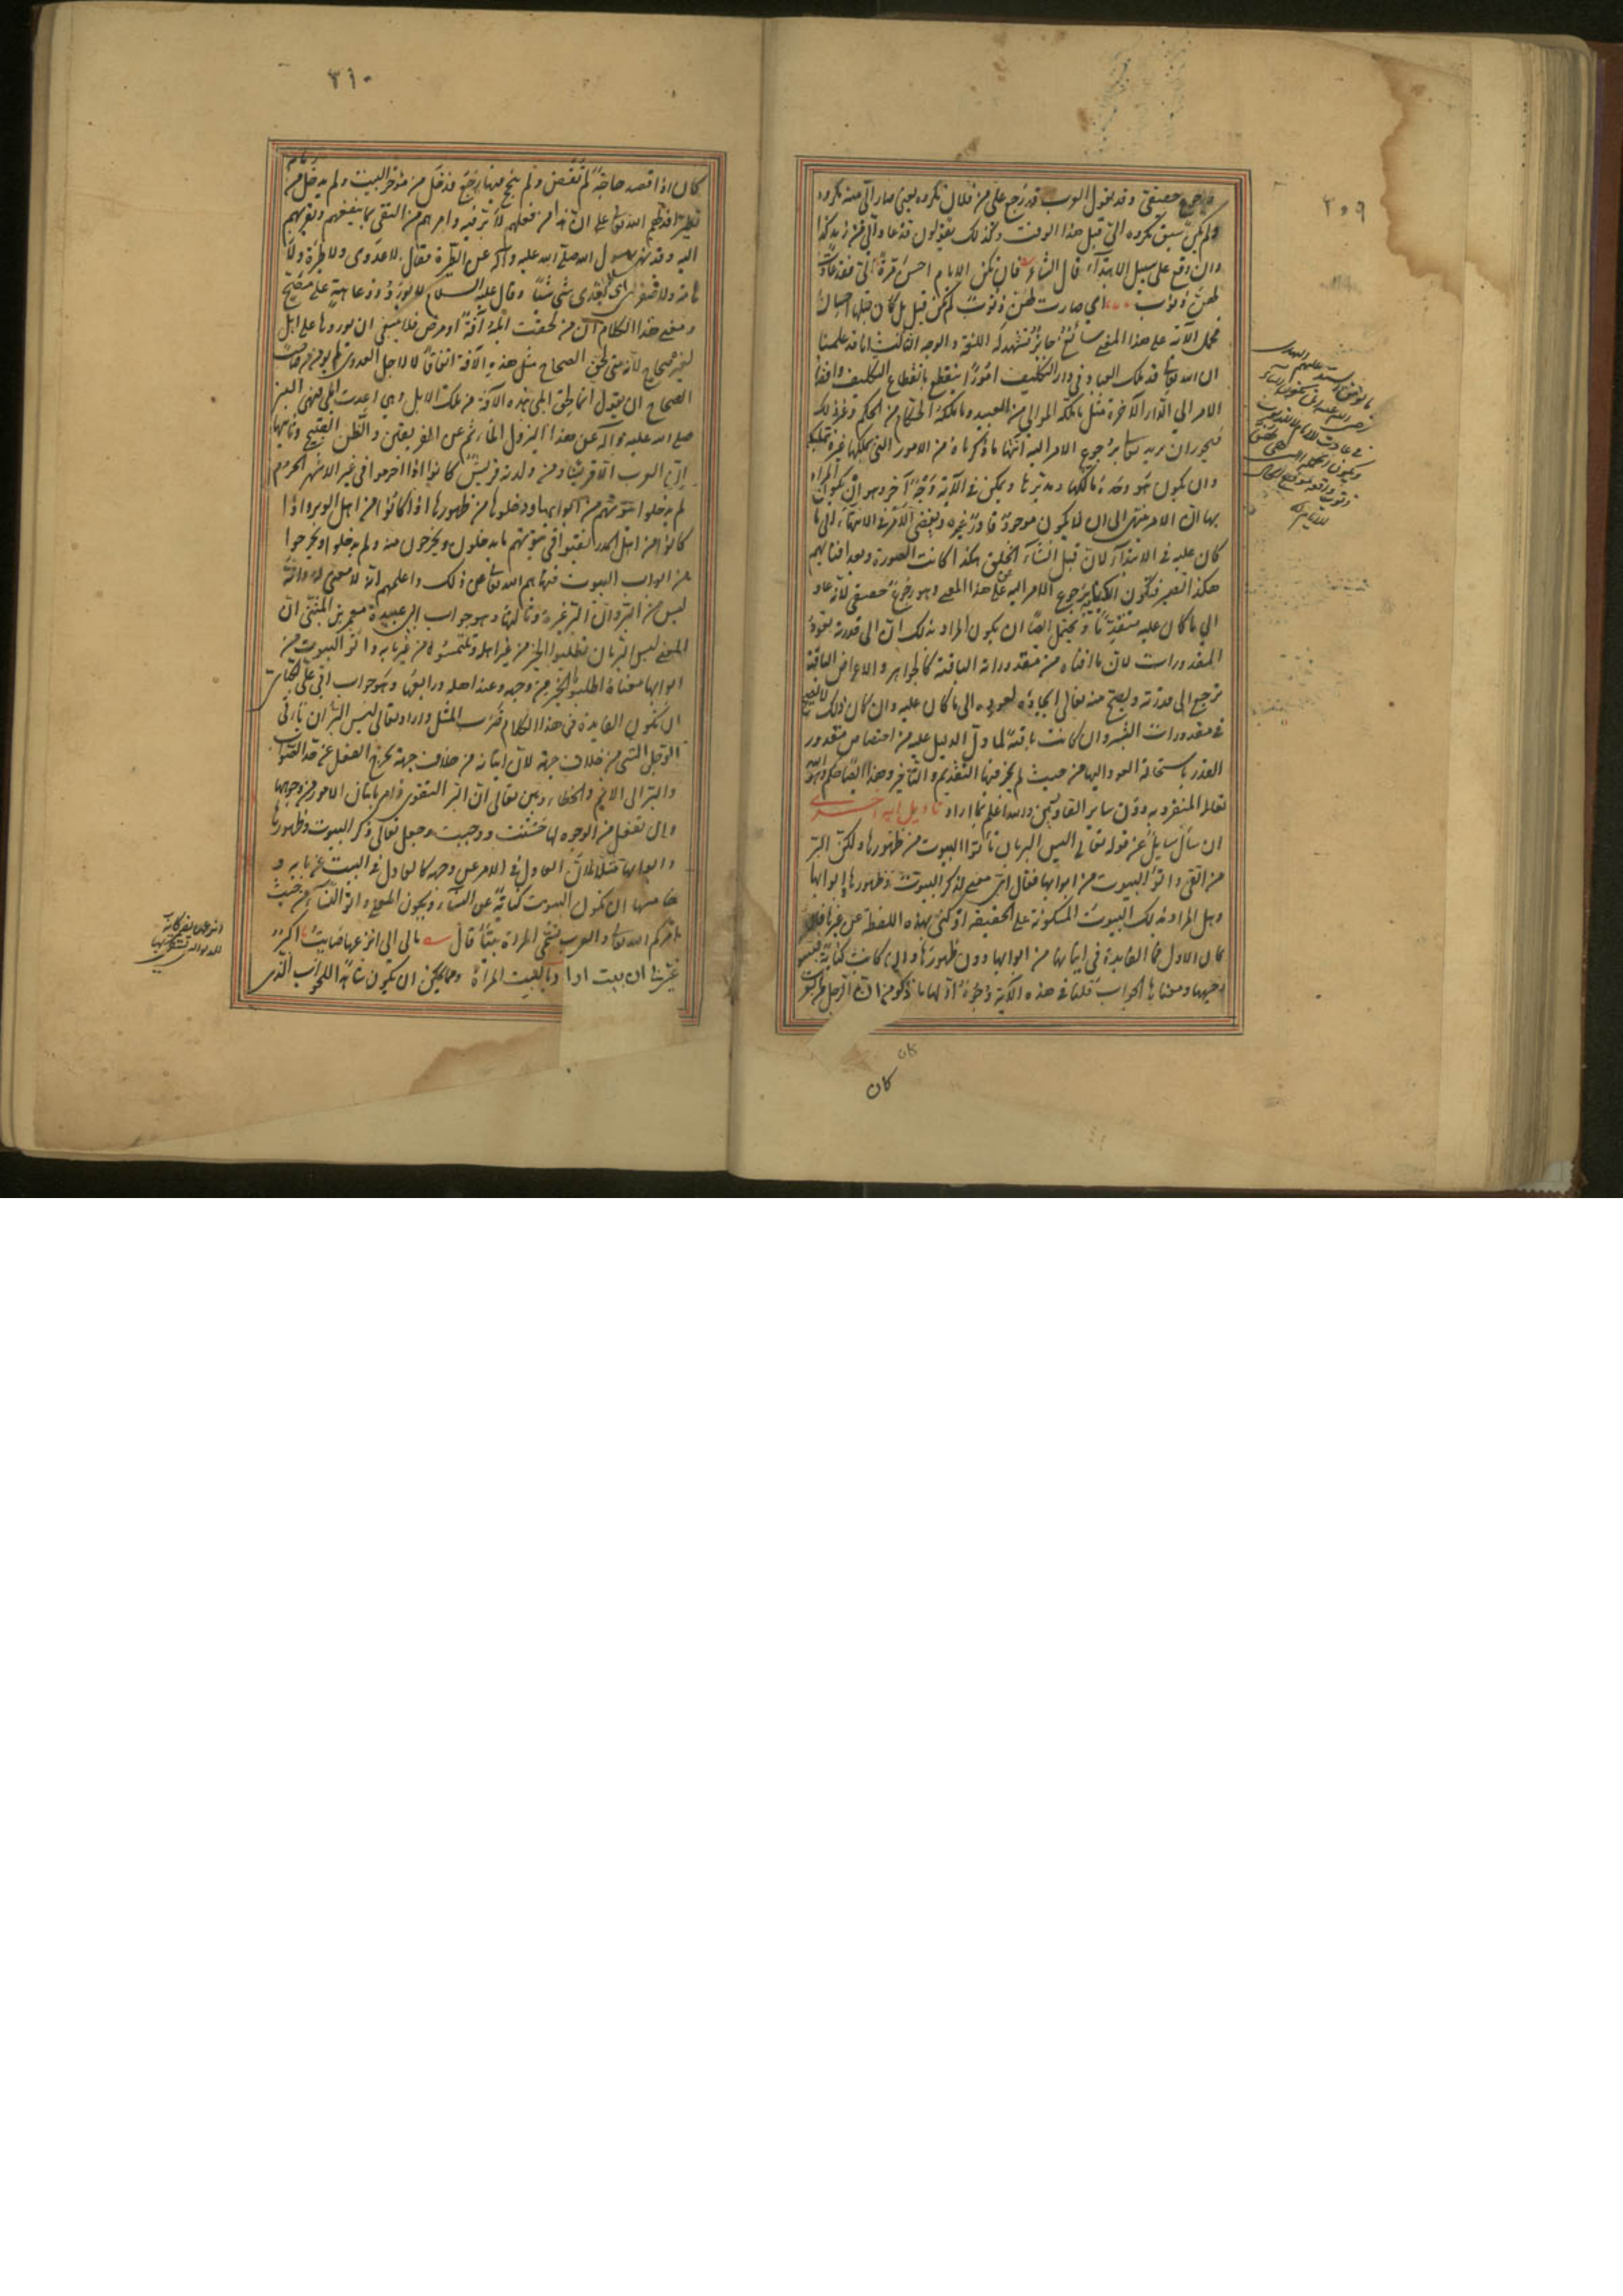 ٢٠٩
رجوع حقيقى وقد يقول العرب قد رجع على من فلان مكروه بمعنى صار الى منه مكروه
ولم يكن سبق مكروه الى قبل هذا الوقت وكذلك يقولون قد عاد الى من زيد كذا
وان وقع على سبيل الابتداء قال الشاعر فان تكن الايام احسن مرة الى فقد عادت
لهن ذنوب اى صارت لهن ذنوب لم تكن قبل بل كان قبلها احسان
فحمل الآية على هذا المعنى سائغ جائز تشهد له اللغة والوجه الثالث انا قد علمنا
ان الله تعالى قد ملك العباد فى دار التكليف امورا تنقطع بانقطاع التكليف وافضاء
الامر الى الدار الآخرة مثل ما ملكه الموالى من العبيد وما ملكه الحكام من الحكم وغير ذلك
فيجوز ان يريد تعالى برجوع الامر اليه انتهاء ما ذكرناه من الامور التى يملكها غيره بتمليكه
وان يكون هو وحده مالكها ومدبرها ويمكن فى الآية وجه آخر وهو ان يكون المراد
بها ان الامر ينتهى الى ان لا يكون موجود قادر غيره ويفضى الامر فى الانتهاء الى ما
كان عليه فى الابتداء لان قبل انشاء الخلق هكذا كانت الصورة وبعد افنائهم
هكذا تصير فتكون الكناية برجوع الامر اليه عن هذا المعنى وهو رجوع حقيقى لانه عاد
الى ما كان عليه متقدما ويحتمل ايضا ان يكون المراد بذلك ان الى قدرته تعود
المقدورات لان ما افناه من مقدوراته الباقية كالجواهر والاعراض الباقية
ترجع الى قدرته ويصح منه تعالى ايجاده لعوده الى ما كان عليه وان كان ذلك لا يصح
فى مقدورات البشر وان كانت باقية لما دل الدليل عليه من اختصاص مقدور
القدر باستحالة العود اليها من حيث لم يجز فيها التقديم والتأخير وهذا ايضا حكم هو
تعالى المتفرد به دون سائر القادرين والله اعلم بما اراد تاويل آية اخرى
ان سأل سايل عن قوله تعالى ليس البر بان تأتوا البيوت من ظهورها ولكن البر
من اتقى واتوا البيوت من ابوابها فقال اى معنى لذكر البيوت وظهورها وابوابها
وهل المراد بذلك البيوت المسكونة على الحقيقة او كنى بهذه اللفظة عن غيرها فان
كان الاول فما الفايدة فى اتيانها من ابوابها دون ظهورها وان كانت كناية فبينوا
وجهها ومعناها الجواب قلنا فى هذه الآية وجوه اولها ما ذكر من ان الرجل من العرب
كان
كان
٢١٠
كان اذا قصد حاجة لم تقض ولم ينجح فيها رجع فدخل من مؤخر البيت ولم يدخل من
تطيرا فدلهم الله تعالى على ان هذا من فعلهم لا بر فيه وامرهم من التقى بما ينفعهم ويقربهم
اليه وقد نهى رسول الله صلى الله عليه وآله عن الطيرة فقال لا عدوى ولا طيرة ولا
هامة ولا صفر اى لا يعدى شئ شيئا وقال عليه السلام لا يورد ذو عاهة على مصح
ومعنى هذا الكلام ان من لحقت ابله آفة او مرض فلا ينبغى ان يوردها على ابل
لغيره صحاح لانه متى لحق الصحاح مثل هذه الآفة اتفاقا لا لاجل العدوى
الصحاح ان يقول انما لحق ابلى هذه الآفة من تلك الابل وهى اعدت ابلى فنهى النبى
صلى الله عليه وآله عن هذا ليزول المأثم عن الفريقين والظن القبيح وثانيها
ان العرب الا قريشا ومن ولدته قريش كانوا اذا احرموا فى غير الاشهر الحرم
لم يدخلوا بيوتهم من ابوابها ودخلوها من ظهورها اذا كانوا من اهل الوبر واذا
كانوا من اهل المدر نقبوا فى بيوتهم ما يدخلون ويخرجون منه ولم يدخلوا ويخرجوا
من ابواب البيوت فنهاهم الله تعالى عن ذلك واعلمهم انه لا معنى له وانه
ليس من البر وان البر غيره وثالثها وهو جواب ابى عبيدة معمر بن المثنى ان
المعنى ليس البر بان تطلبوا الخير من غير اهله وتلتمسوه من غير بابه واتوا البيوت من
ابوابها معناه اطلبوا الخير من وجهه وعند اهله ورابعها وهو جواب ابى على الجبائى
ان تكون الفايدة فى هذا الكلام ضرب المثل واراد تعالى ليس البر ان يأتى
الرجل الشئ من خلاف جهته لان اتيانه من خلاف جهته يخرج الفعل عن حد الصواب
والبر الى الاثم والخطاء وبين تعالى ان البر التقوى وامر باتيان الامور من وجوهها
وان تفعل من الوجوه لها حسنت ووجبت وجعل تعالى ذكر البيوت وظهورها
وابوابها مثلا لان العادل فى الامر عن وجهه كالعادل فى البيت عن بابه و
خامسها ان تكون البيوت كناية عن النساء ويكون المعنى واتوا النساء من حيث
امركم الله تعالى والعرب تسمى المراة بيتا قال مالى اذا انزعها صايت اكبر
غيرنى ان بيت اراد بالبيت المرأة ومما يمكن ان يكون شاهدا للجواب الذى